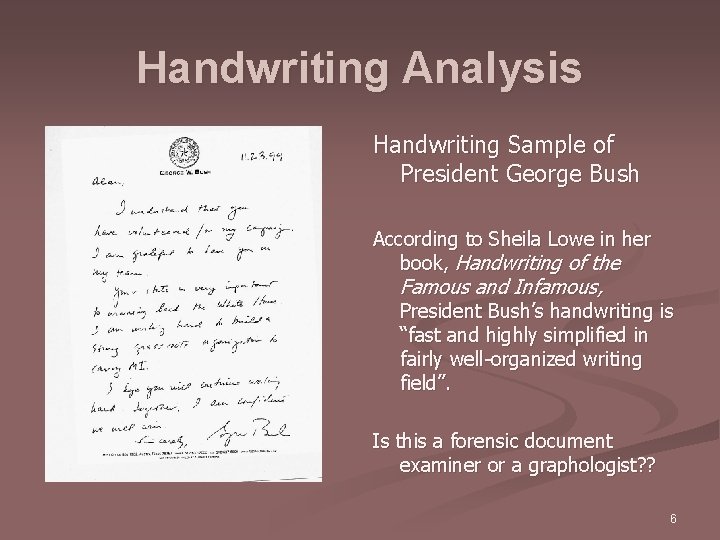 Handwriting Analysis
11.23.99
GEORGE W. BUSH
Alan,
I understand that you
have volunteered for my campaign.
I am grateful to have you on
my team.
Your state is very important
to winning back the White House.
I am working hard to build a
strong grass roots organization to
carry MI.
I hope you will continue working
hard. Together, I am confident
we will win.
Sincerely,
Handwriting Sample of
President George Bush
According to Sheila Lowe in her
book, Handwriting of the
Famous and Infamous,
President Bush’s handwriting is
“fast and highly simplified in
fairly well-organized writing
field”.
Is this a forensic document
examiner or a graphologist? ?
6